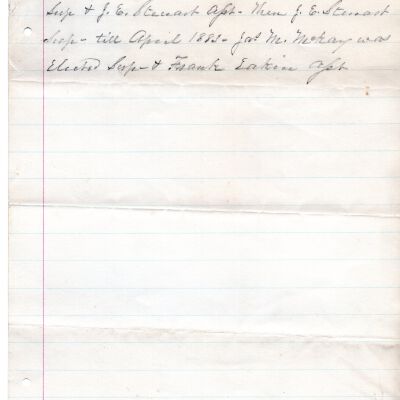 Sup & J. E. Stewart Asst - Then J. E. Stewart
Sup - till April 1883 - Jas M. McKay was
Elected Sup - & Frank Eakin Asst